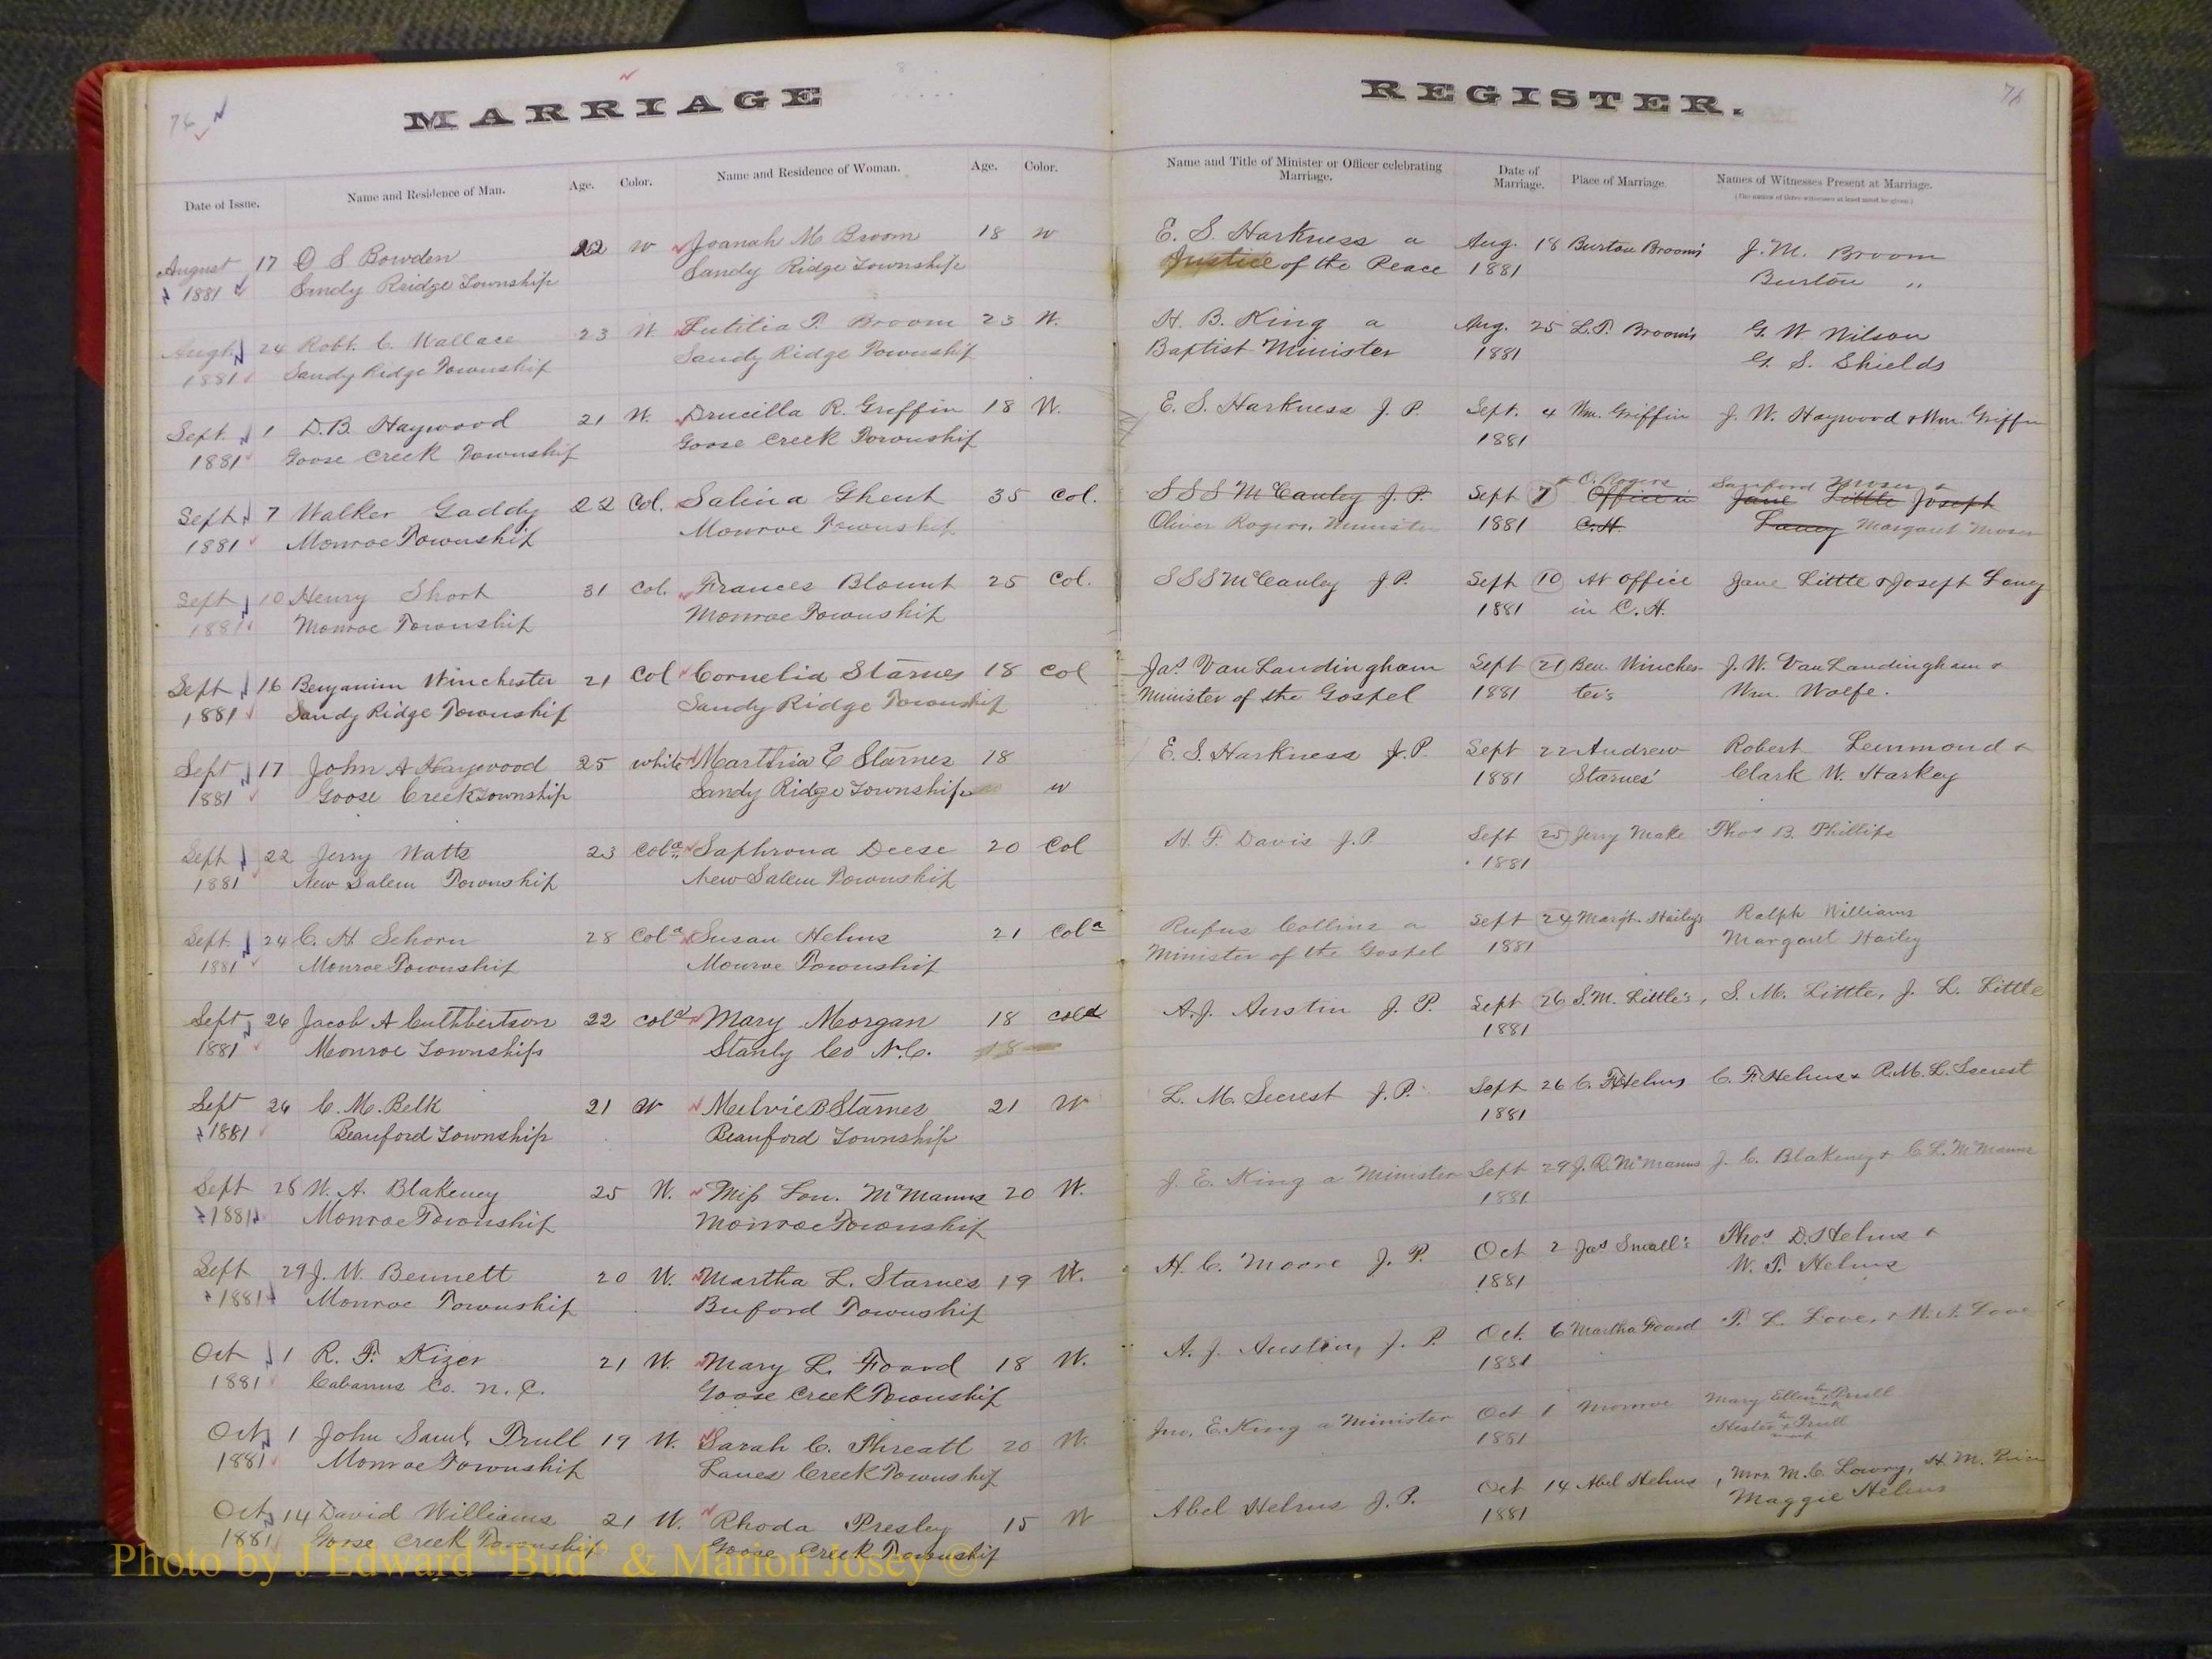 MARRIAGE
74
Date of Issue. Name and Residence of Man. Age. Color. Name and Residence of Woman. Age. Color.
August 17 O S Bowden 22 W Joanah M Broom 18 W
1881 Sandy Reidge Township Sandy Ridge Township
Augt 24 Robt. C. Wallace 23 W. Lutitia P. Broom 23 W.
1881 Sandy Ridge Township Sandy Ridge Township
Sept. 1 D.B. Haywood 21 W. Drucilla R. Griffin 18 W.
1881 Goose Creek Township Goose Creek Township
Sept. 7 Walker Gaddy 22 Col. Salina Ghent 35 Col.
1881 Monroe Township Monroe Township
Sept 10 Henry Short 31 Col. Frances Blount 25 Col.
1881 Monroe Township Monroe Township
Sept 16 Benjamin Winchester 21 Col Cornelia Starnes 18 Col
1881 Sandy Ridge Township Sandy Ridge Township
Sept 17 John A Haywood 25 white Marthia E Starnes 18
1881 Goose Creek Township Sandy Ridge Township W
Sept 22 Jerry Watts 23 Cold Saphrona Deese 20 Col
1881 New Salem Township New Salem Township
Sept. 24 C. H Schorn 28 Cold Susan Helms 21 Cold
1881 Monroe Township Monroe Township
Sept 26 Jacob A Cuthbertson 22 Cold Mary Morgan 18 Cold
1881 Monroe Township Stanly Co N.C. 18
Sept 26 C. M. Belk 21 W Melvie B Starnes 21 W
1881 Beauford Township Beauford Township
Sept 28 W. A. Blakeney 25 W. Miss Lou. McManus 20 W.
1881 Monroe Township Monroe Township
Sept 29 J. W. Bennett 20 W. Martha L. Starnes 19 W.
1881 Monroe Township Buford Township
Oct 1 R. F. Kizer 21 W. Mary L. Foard 18 W.
1881 Cabarrus Co. N.C. Goose Creek Township
Oct 1 John Saml. Trull 19 W. Sarah C. Threatt 20 W.
1881 Monroe Township Lanes Creek Township
Oct 14 David Williams 21 W. Rhoda Presley 15 W
1881 Goose Creek Township Goose Creek Township
REGISTER.
Name and Title of Minister or Officer celebrating Marriage. Date of Marriage. Place of Marriage. Names of Witnesses Present at Marriage.
(The names of three witnesses at least must be given.)
E. S. Harkness a Aug. 18 Burton Broom's J. M. Broom
Justice of the Peace 1881 Burton "
H. B. King a Aug. 25 L.P. Broom's G. W Wilson
Baptist Minister 1881 G. S. Shields
E. S. Harkness J. P. Sept. 4 Wm. Griffin J. W. Haywood & Wm. Griffin
1881
O. Rogers Sanford Moser &
S S S McCauley J. P. Sept 7 Office in Jane Little Joseph
Oliver Rogers, Minister 1881 C.H. Laney Margaret Moser
S S S McCauley J P. Sept 10 At Office Jane Little & Joseph Laney
1881 in C. H.
Jas VanLandingham Sept 21 Ben. Winches- J. W. VanLandingham &
Minister of the Gospel 1881 ter's Wm. Wolfe.
E. S. Harkness J. P. Sept 22 Andrew Robert Lemmond &
1881 Starnes' Clark W. Starkey
H. F. Davis J. P. Sept 25 Jerry Thos B. Phillips
1881
Rufus Collins a Sept 24 Margt. Hailey's Ralph Williams
Minister of the Gospel 1881 Margaret Hailey
A. J. Austin J. P. Sept 26 S. M. Little's, S. M. Little, J. L. Little
1881
L. M. Secrest J. P. Sept 26 C. F. Helms C. F. Helms & R. M. L. Secrest
1881
J. E. King a Minister Sept 29 J. R. McManus J. C. Blakeney & C. L. McManus
1881
H. C. Moore J. P. Oct 2 Jas Small's Thos D. Helms &
1881 W. T. Helms
A. J. Austin, J. P. Oct. 6 Martha Foard T. L. Love, & W. A. Love
1881
Jno. E. King a Minister Oct 1 Monroe Mary Ellen her x mark Trull
1881 Hester her x mark Trull
Abel Helms J. P. Oct 14 Abel Helms, Mrs. M. C. Lowry, H. M. Price
1881 Maggie Helms
Photo by J Edward "Bud" & Marion Josey ©